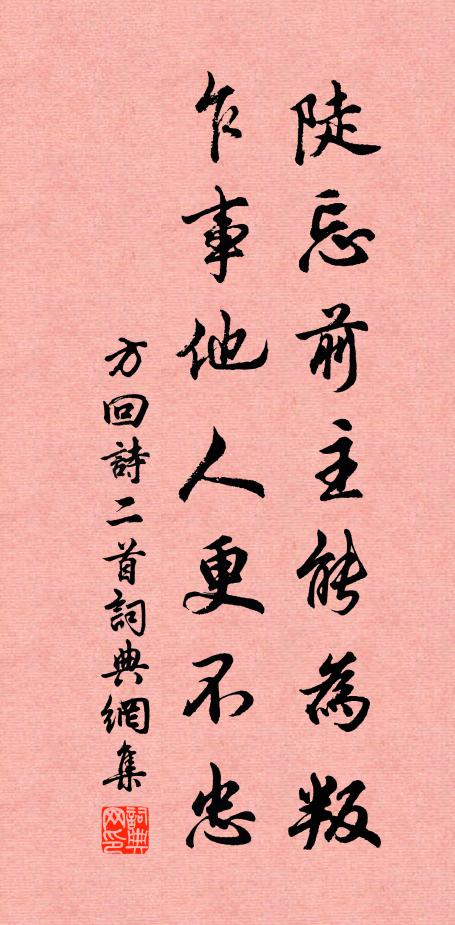 陡忘前主能為叛
乍事他人更不忠
方回詩二首詞典網集
詞典网印